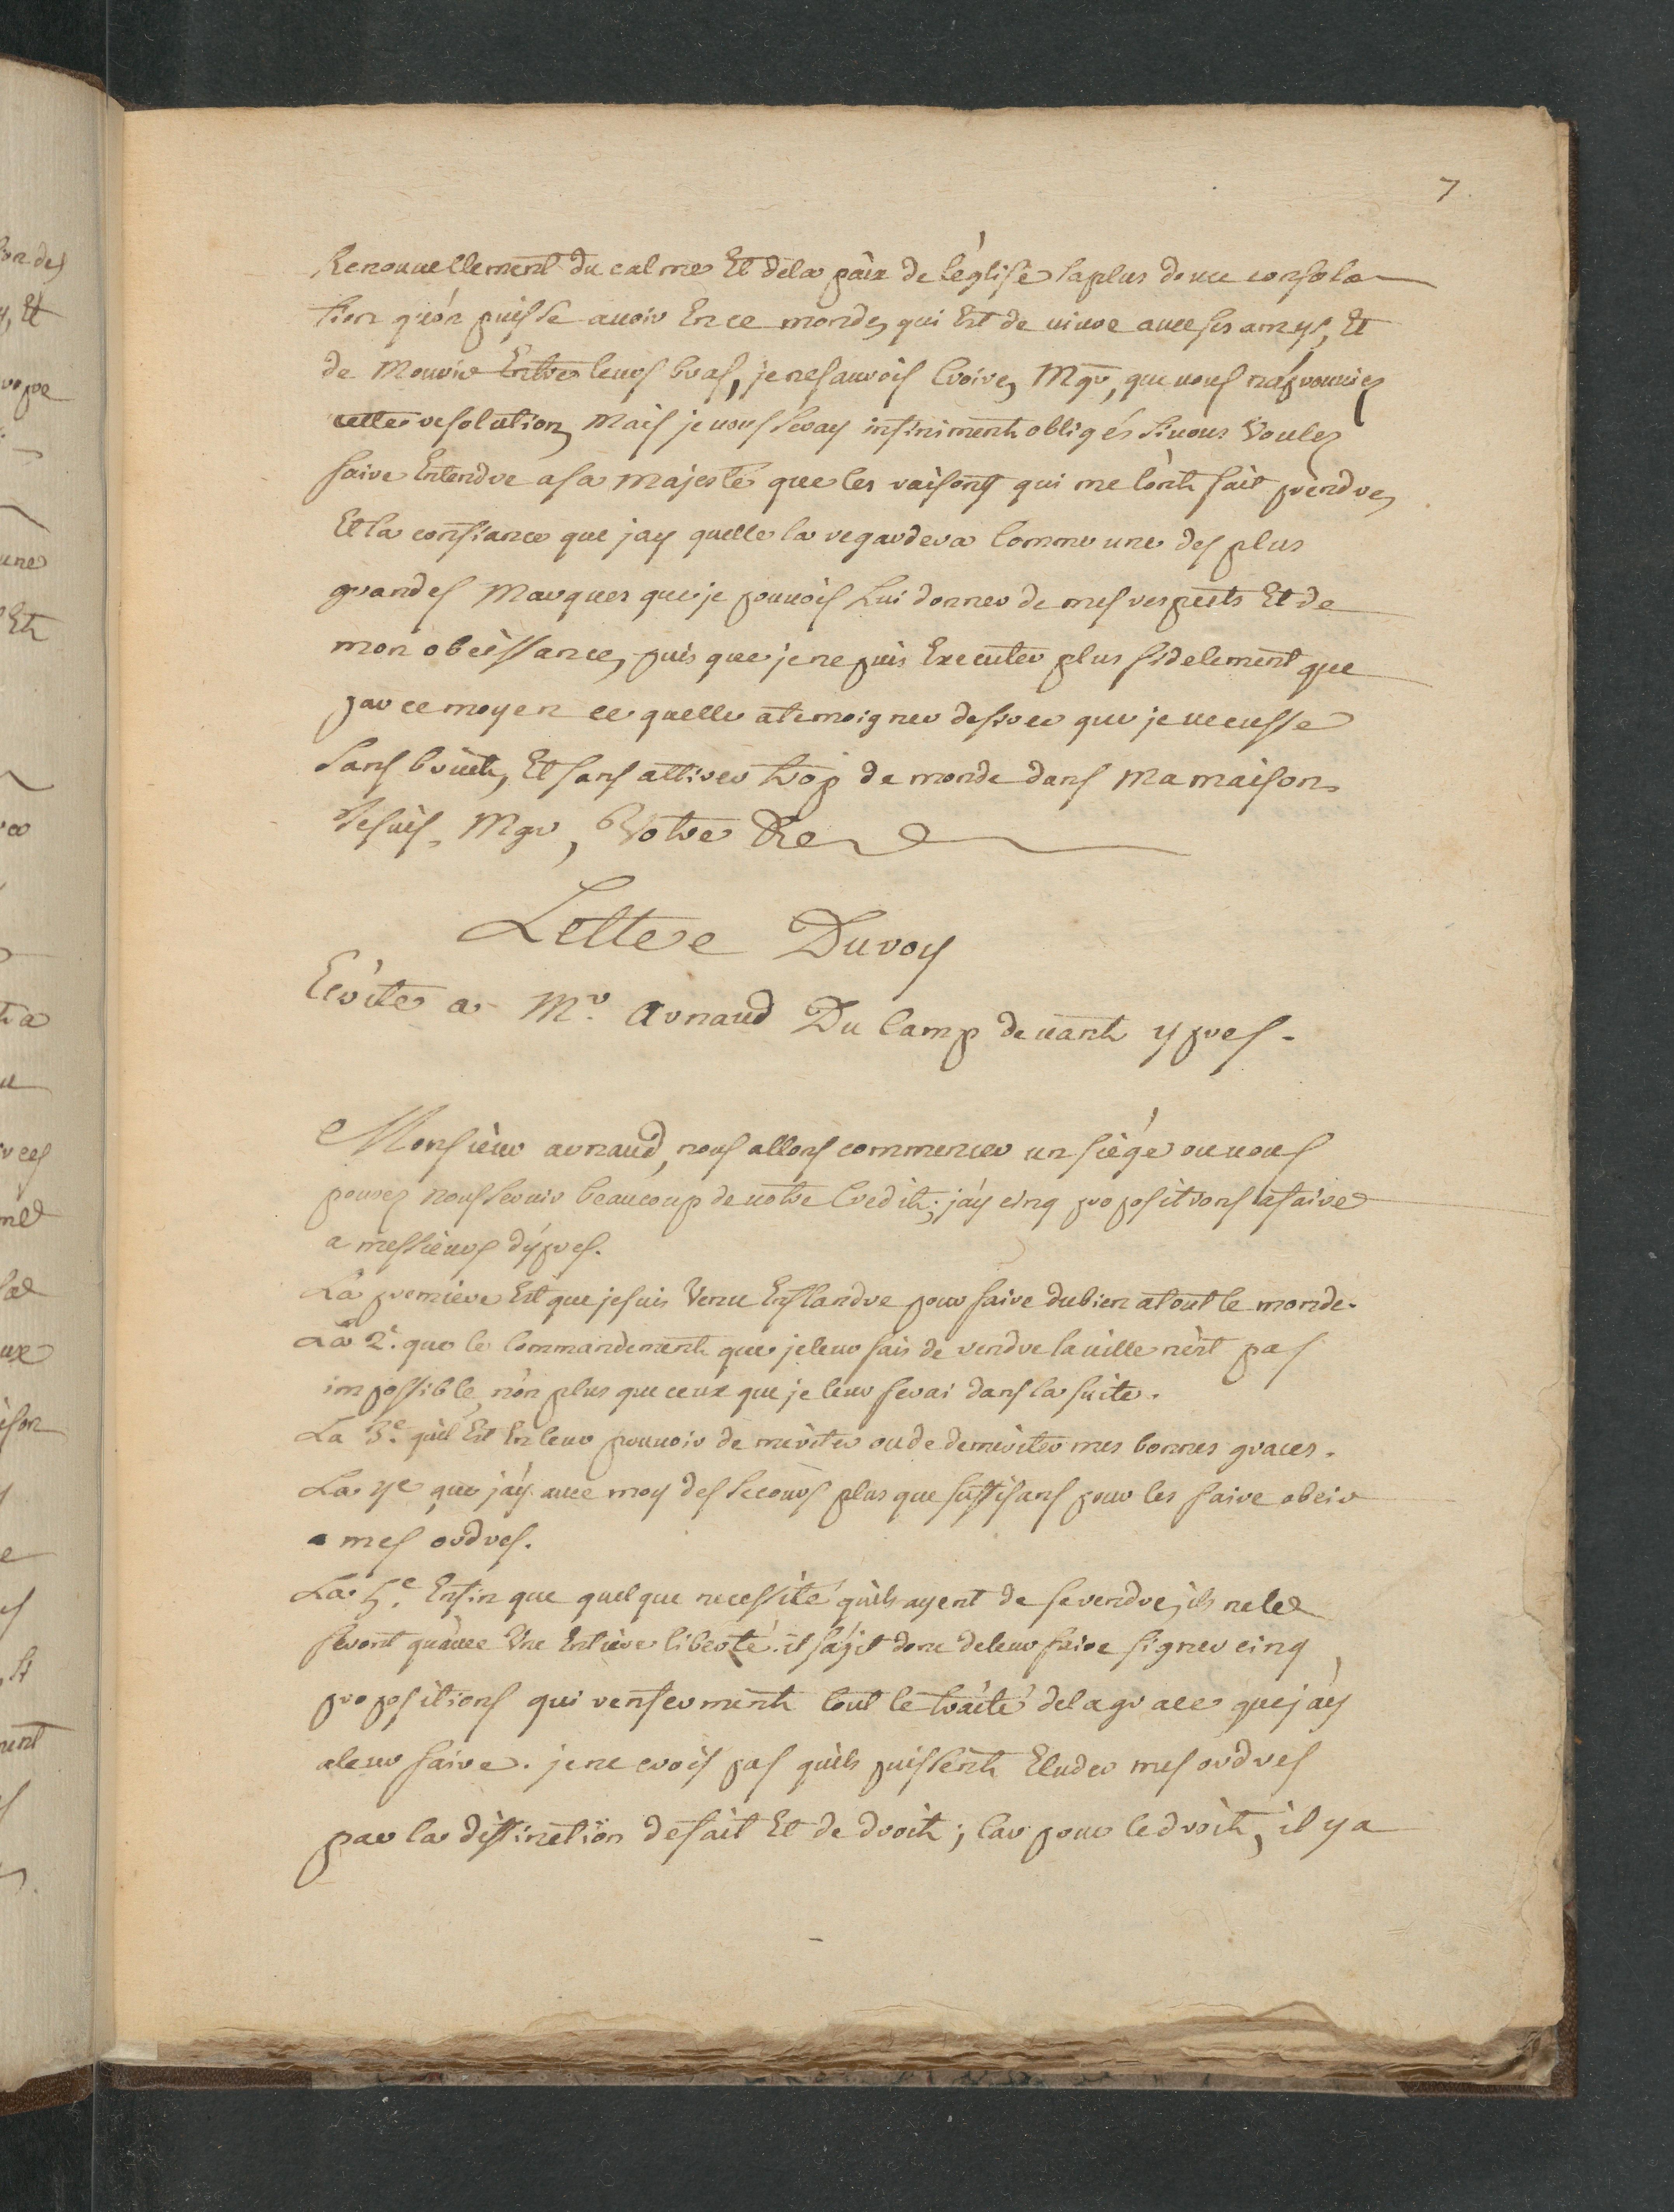 7.
Renouuellement du calme Et dela paix de l'église la plus douce consola-
tion qu'on puisse auoir En ce monde, qui Est de uiure auec ses amys, Et
de Mourir Entre leurs bras, je ne saurois Croire, Mgr, que uous n'áprouuiez
cette resolution, Mais je uous seray infiniment obligés si uous Voulez
faire Entendre a sa Majesté que les raisons qui me l'ont fait prendre,
Et la confiance que jay quelle la regardera Comme une des plus
grandes Marques que je pouuois Lui donner de mes respects Et de
mon obeissance, puis que je ne puis Executer plus fidelement que
par ce moyen ce quelle a temoigner desirer que je uecusse
sans bruit, Et sans attirer trop de monde dans Ma maison.
Je suis, Mgr, Votre &c
Lettre Du roy
Ecrite a Mr. Arnaud Du Camp deuant ypres.
Monsieur arnaud, nous allons commencer un siége ou uous
pouuez nous seruir beaucoup de uotre Credit; j'ay cinq propositions a faire
a messieurs d'ypres.
La premiere Est que je suis Venu En flandre pour faire du bien a tout le monde.
La 2e. que le Commandement que je leur fais de rendre la uille n'est pas
impossible, non plus que ceux que je leur ferai dans la suite.
La 3e. qu'il Est En leur pouuoir de meriter ou de demeriter mes bonnes graces.
La 4e que j'ay auec moy des secours plus que suffisans pour les faire obeir
a mes ordres.
La 5e. Enfin que quelque necessité qu'ils ayent de se rendre, ils ne le
feront qu'auec Une Entiere liberté. il s'ágit donc de leur faire signer cinq
propositions qui renferment tout le traité de la grace que j'ay
a leur faire. je ne crois pas qu'ils puissent Eluder mes ordres
par la distinction de fait Et de droit; Car pour le droit, il y a